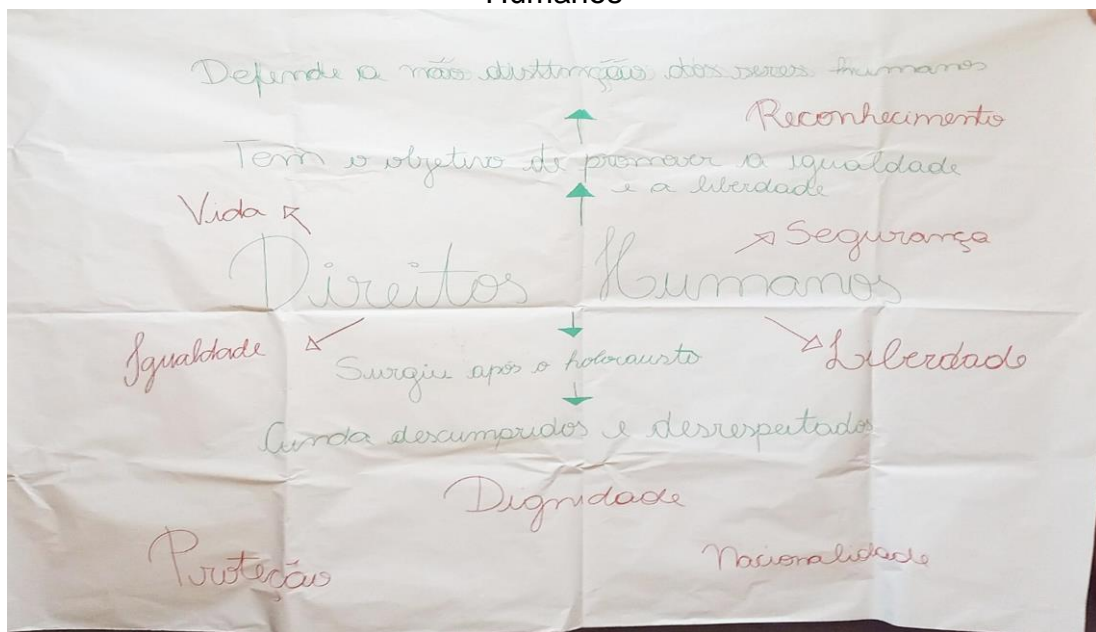 Humanos
Defende a não distinção dos seres humanos
Reconhecimento
Tem o objetivo de promover a igualdade
e a liberdade
Vida
Segurança
Direitos Humanos
Igualdade
Liberdade
Surgiu após o holocausto
Ainda descumpridos e desrespeitados
Dignidade
Proteção
Nacionalidade